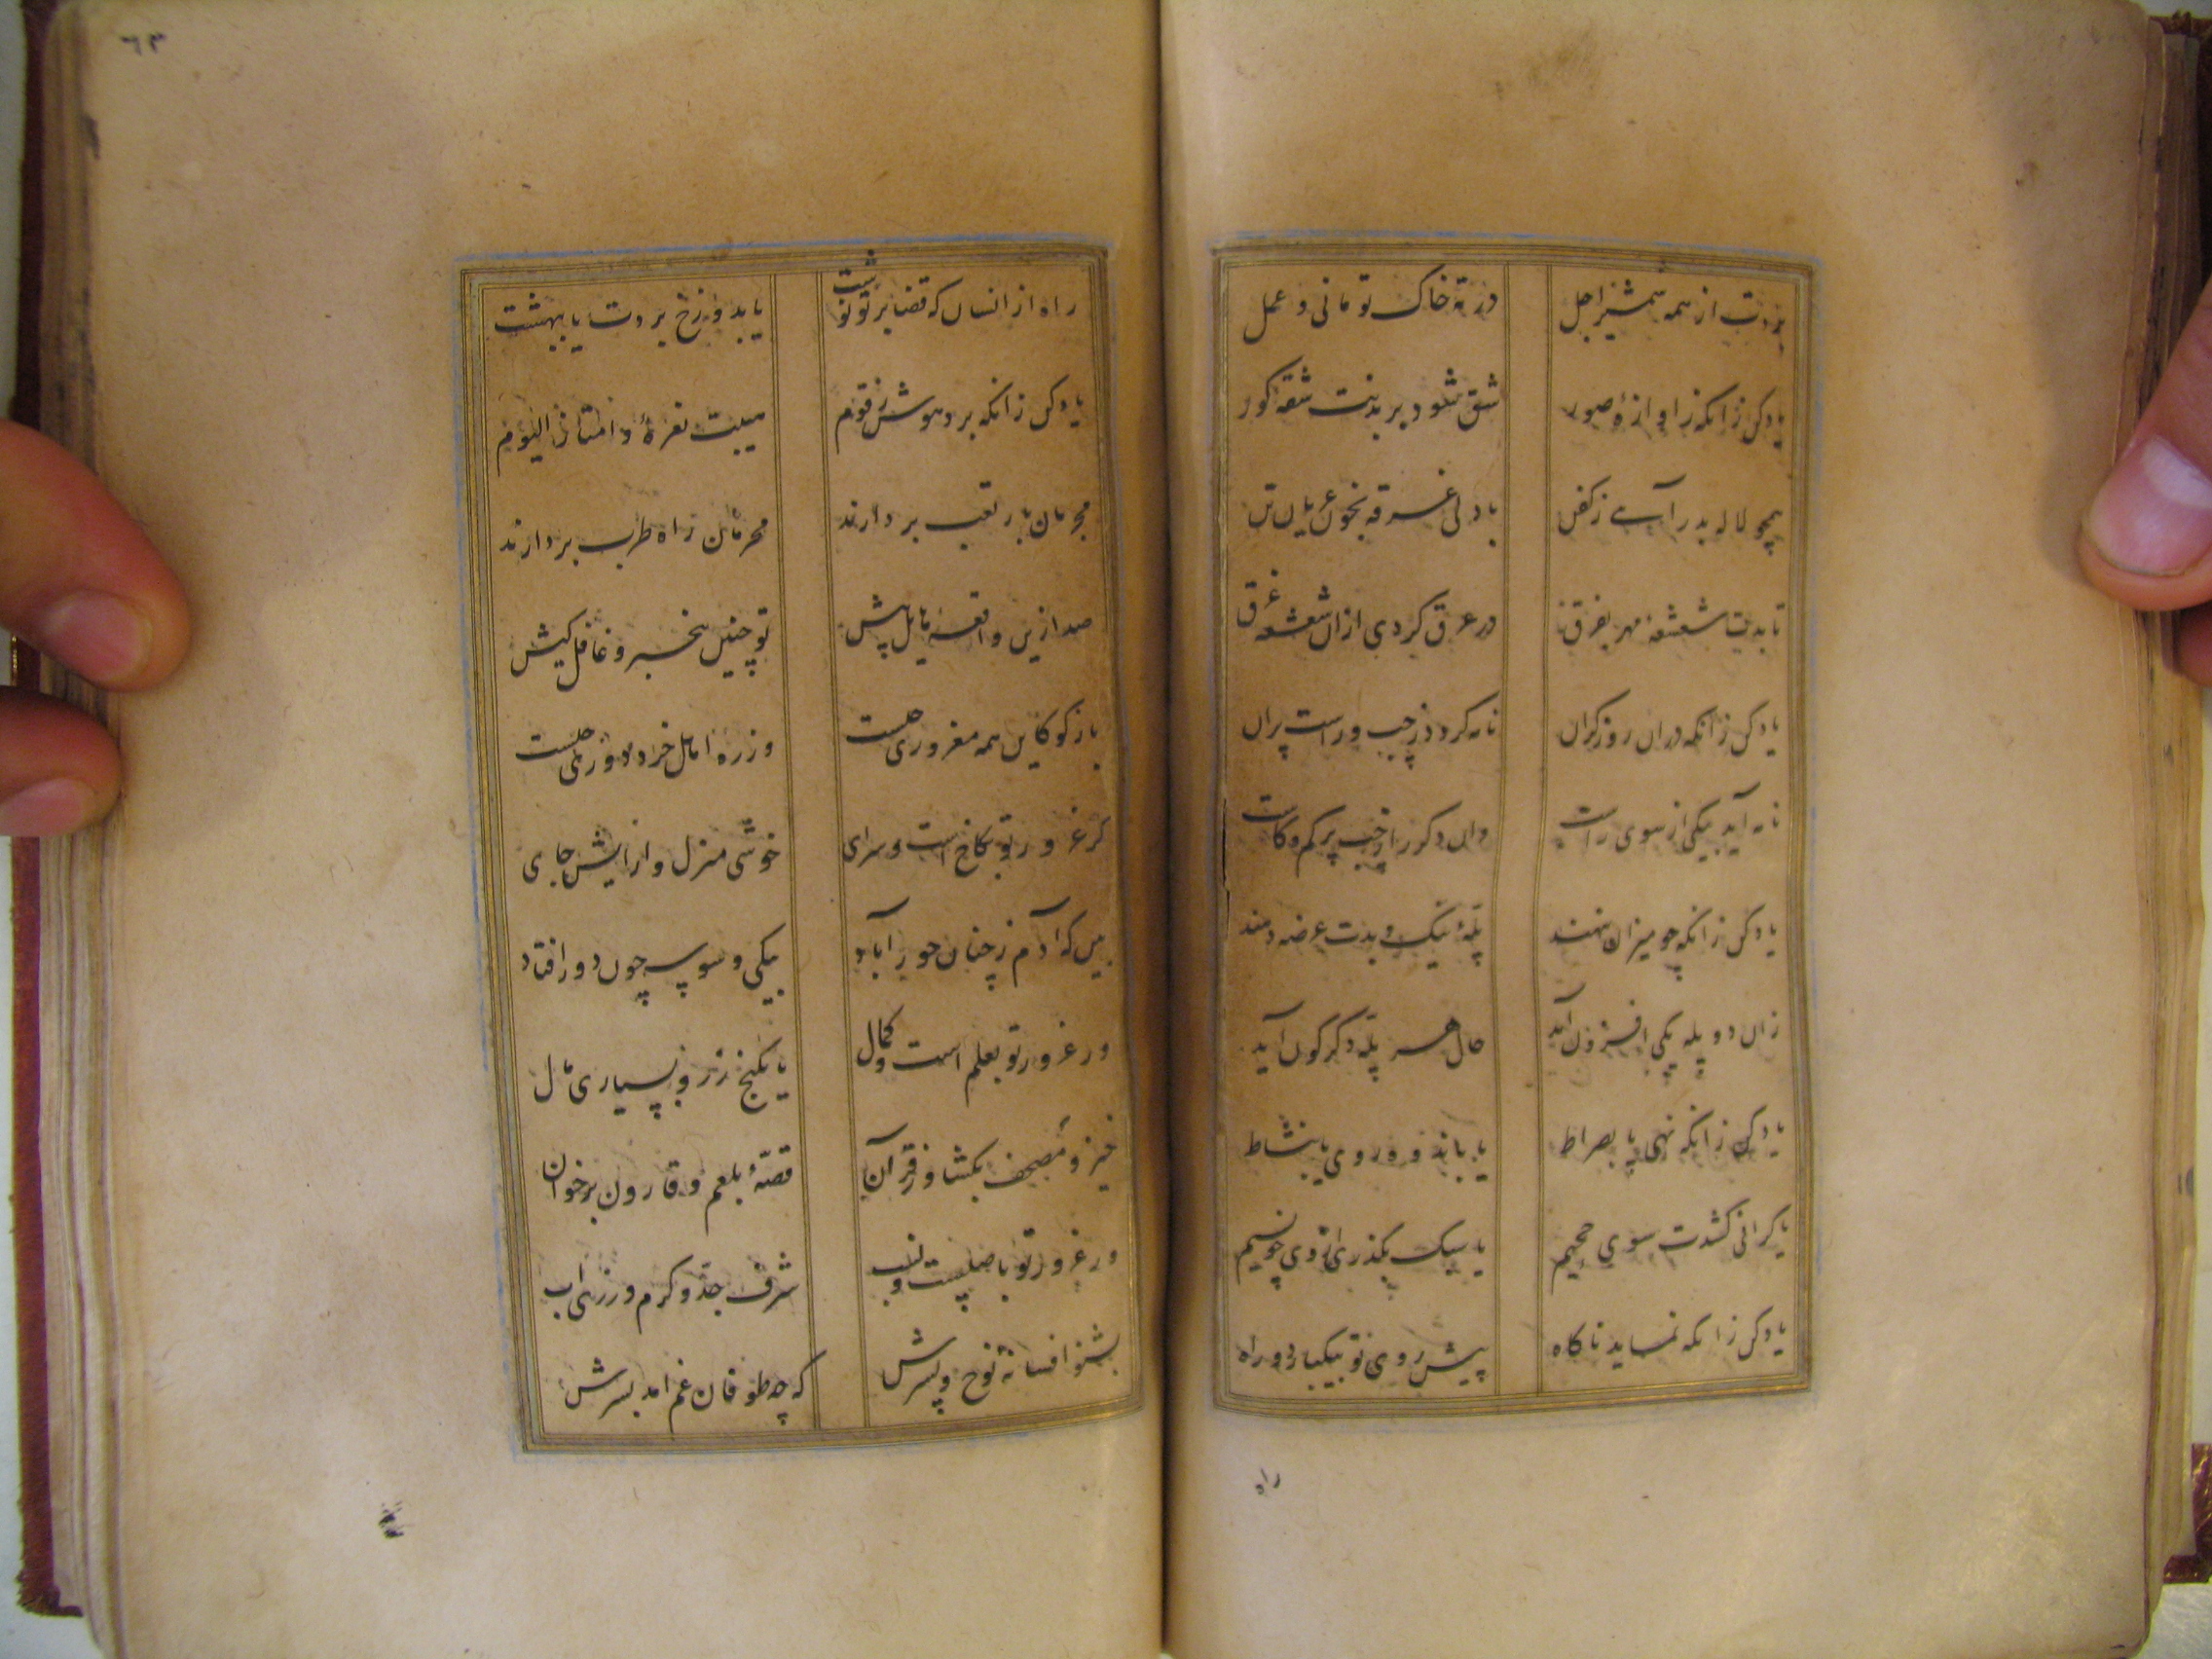 ببردت از همه شمشیر اجل
در ته خاک تو مانی و عمل
یاد کن زانکه ز آوازهٔ صور
شق شود بر بدنت شقهٔ کور
همچو لاله بدر آیی ز کفن
با دلی غرقه بخون عریان تن
تابدت شعشعهٔ مهر بفرق
در عرق کردی ازان شعشعه غرق
یاد کن زانکه دران روز کران
نامه کردد ز چپ و راست پران
نامه آید بیکی از سوی راست
وان دکر را ز چپ پر کم و کاست
یاد کن زانکه چو میزان بنهند
پلهٔ نیک و بدت عرضه دهند
زان دو پله یکی افزون آید
حال هر پله دکرکون آید
یاد کن زانکه نهی پا بصراط
پا بماند فرو روی یا بنشاط
یا کرانی کشدت سوی جحیم
یا سبک بگذری از وی چو نسیم
یاد کن زانکه نماید ناکاه
پیش روی تو بیکبار دو راه
راه
٦٣
راه ازانسان که قضا بر تو نوشت
یا بدوزخ بردت یا ببهشت
یاد کن زانکه برد هوش ز قوم
هیبت نعرهٔ وامتازوا الیوم
مجرمان بار تعب بردارند
محرمان راه طرب بردارند
صد ازین واقعهٔ هایل پیش
تو چنین بیخبر و غافل کیش
باز کو کاین همه مغروری چیست
وز ره اهل خرد دوری چیست
کر غرور تو بکاخ است و سرای
خوشی منزل و آرایش جای
بین که آدم ز چنان حور آباد
بیکی وسوسه چون دور افتاد
ور غرور تو بعلم است و کمال
یا بکنج زر و بسیاری مال
خیز و مصحف بکشا وز قرآن
قصهٔ بلعم و قارون برخوان
ور غرور تو باصلست و نسب
شرف جد و کرم ورزی اب
بشنو افسانهٔ نوح و پسرش
که چه طوفان غم آمد بسرش